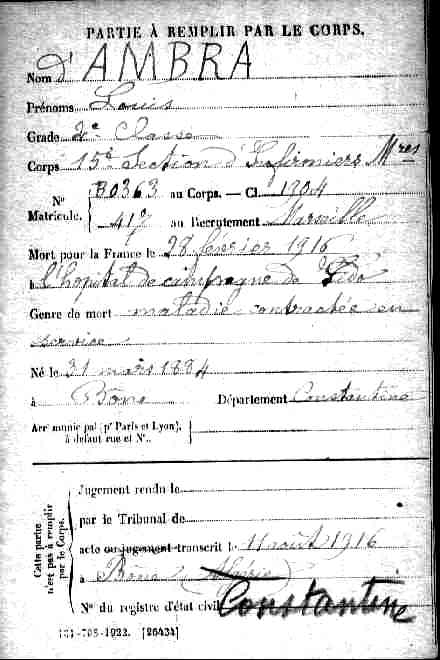 PARTIE À REMPLIR PAR LE CORPS.
Nom d'AMBRA
Prénoms Louis
Grade 2e Classe
Corps 15e Section d'Infirmiers Mres
N° Matricule. B0363 au Corps. — Cl. 1904
417 au Recrutement Marseille
Mort pour la France le 28 février 1916
à l'hopital de campagne de
Genre de mort maladie contractée en
service
Né le 31 mars 1884
à Bône Département Constantine
Arrt municipal (pr Paris et Lyon), à défaut rue et N°.
Cette partie n'est pas à remplir par le Corps.
Jugement rendu le
par le Tribunal de
acte ou jugement transcrit le 11 août 1916
à Bône (Algérie)
N° du registre d'état civil Constantine
-708-1922. [26434]